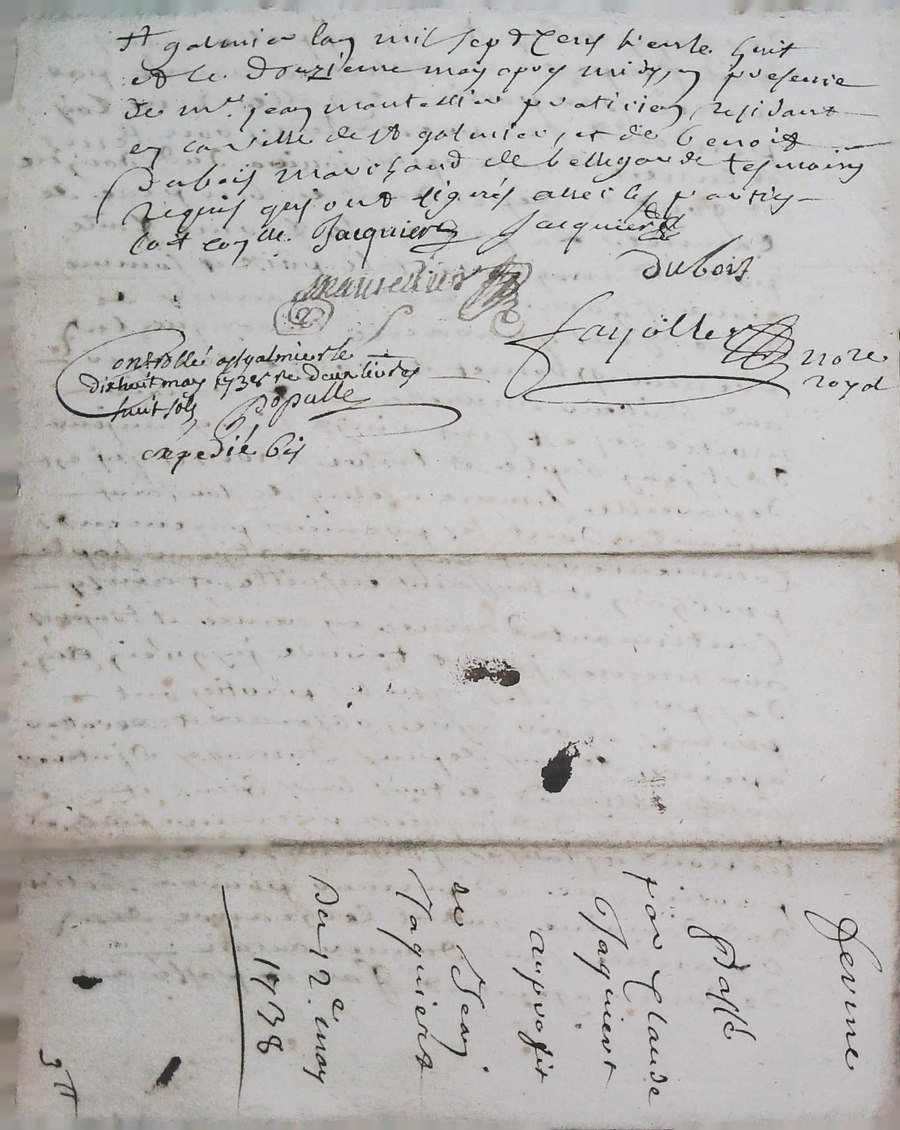 St galmier lan mil sept Cens trente huit
et le douzieme may apres midy en presence
de mre jean mantellier praticien residant
en la ville de St galmier, et de benoist
Dubois marchand de bellegarde tesmoins
requis qui ont signés avec les parties
Jacquiert Jacquiert
Dubois
mantellier
fayolle nore
royal
Controllé a st galmier le
dixhuit may 1738 re deux livres
huit sols Populle
expedié bis
ferme
Passé
par Claude
Jaquiert
au proffit
de Jean
Jaquiert
Du 12e may
1738
3tt